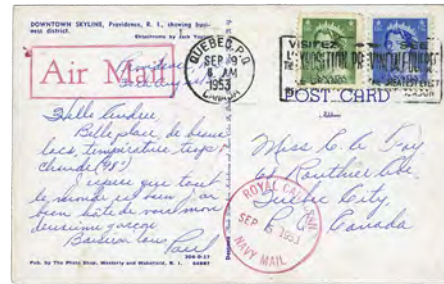 DOWNTOWN SKYLINE, Providence, R. I., showing busi-
ness district.
Ektachrome by Jack
Air Mail
Providence
QUEBEC, P.Q.
SEP 9
6 AM
1953
CANADA
VISITEZ
SEE
L'EXPOSITION PROVINCIALE QUEBEC
POST CARD
Address
Belle place, de beaux
lacs, température trop
chaude (98°)
J'espère que tout
le monde est bien j'ai
bien hâte de voir mon
deuxième garçon
Paul
Miss C. A. Fay
Routhier Ave.
Quebec City,
P.Q. Canada
ROYAL CANADIAN
SEP 5 1953
NAVY MAIL
Pub. by The Photo Shop, Westerly and Wakefield, R. I.